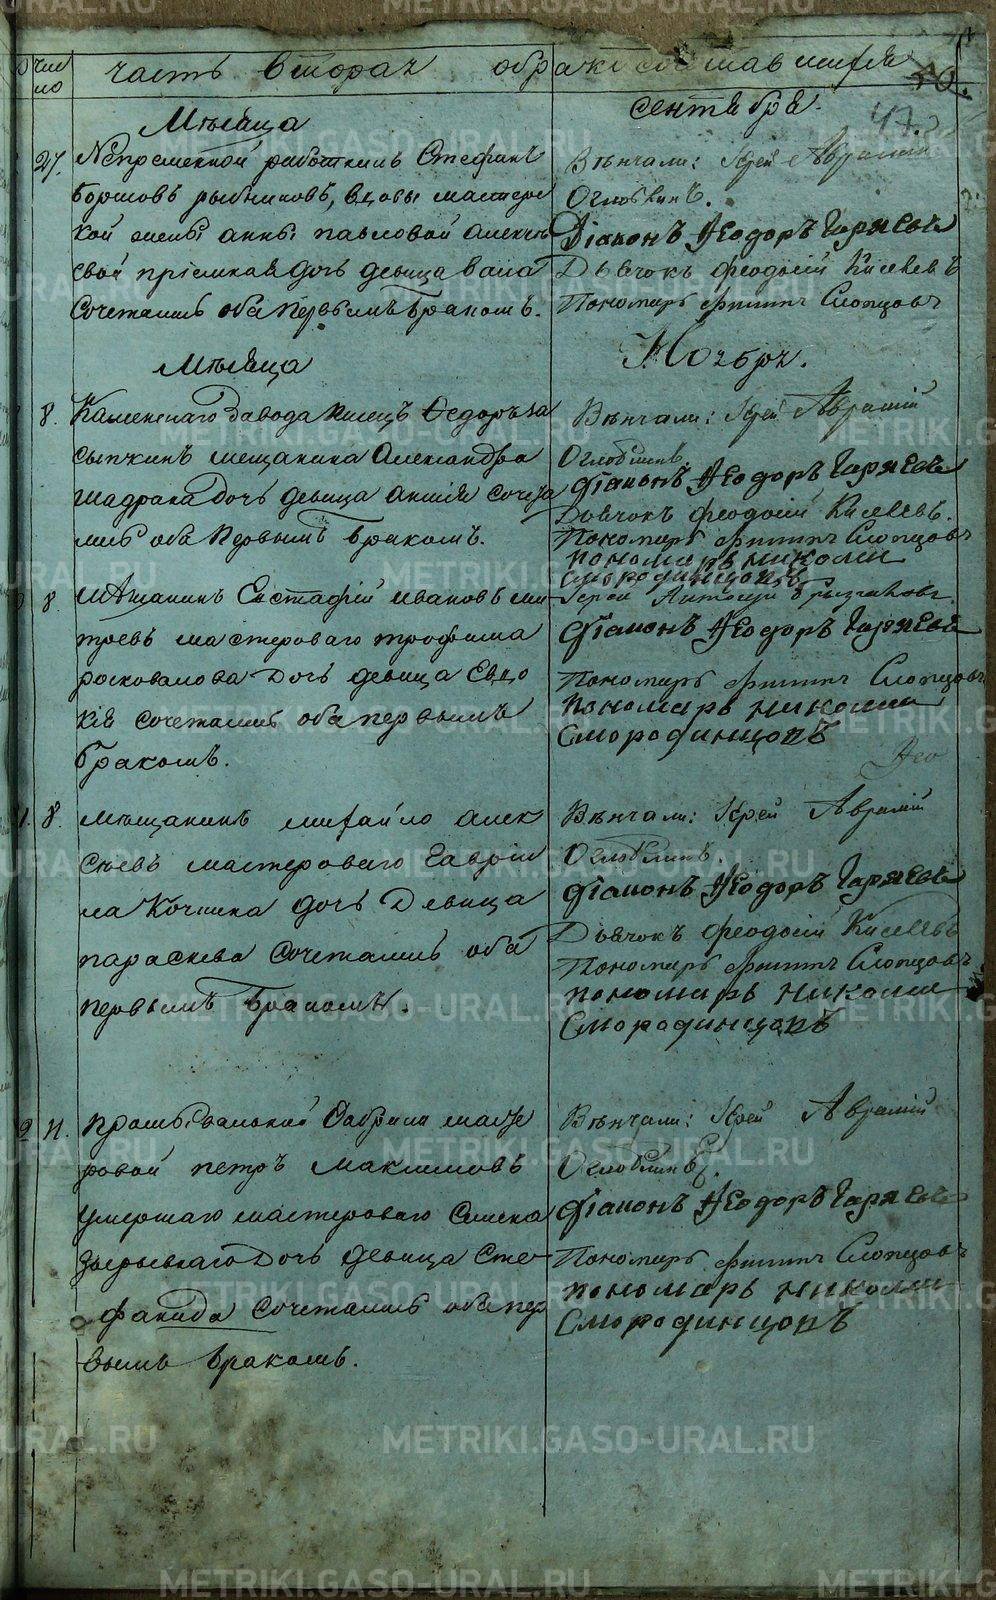 Число
часть вторая о бракосочетавшихся
40.
47.
Мѣсяца сентября.
27. Непремѣнной работникъ Стефанъ
рыбниковъ, вдовы мастерс
кой жены анны павловой алексѣ
евой пріемная дочь девица
Сочетались оба первымъ бракомъ.
Вѣнчали: Іерей Аврамій
Оглоблинъ.
Діаконъ Ѳеодоръ Гаряевъ
Дьячокъ Феодосій Киселевъ
Пономарь филипъ Слопцовъ
Мѣсяца Ноября.
8. Каменскаго завода писецъ Ѳедоръ за
сыпкинъ мещанина Александра
шадрина дочь девица сочета
лись оба первымъ бракомъ.
Вѣнчали: Іерей Аврамій
Оглоблинъ.
Діаконъ Ѳеодоръ Гаряевъ
Дьячокъ феодосій Киселевъ.
Пономарь филипъ Слопцовъ
пономарь николай
Смородинцовъ
8. Мѣщанинъ Евстафій ивановъ ми
треевъ мастероваго трофима
росковалова дочь девица Евдо
кія сочетались оба первымъ
бракомъ.
Іерей Антоній
Діаконъ Ѳеодоръ Гаряевъ
Пономарь филипъ Слопцовъ
пономарь николай
Смородинцовъ
8. мѣщанинъ михайло алек
сѣевъ мастероваго гаврии
ла Кочнина дочь Девица
параскева сочетались оба
первымъ бракомъ.
Вѣнчали: Іерей Аврамій
Оглоблинъ.
Діаконъ Ѳеодоръ Гаряевъ
Дьячокъ феодосій Киселевъ
Пономарь филипъ Слопцовъ
пономарь николай
Смородинцовъ
11. фабрики масте
ровой петръ максимовъ
умершаго мастероваго Семена
Зырянскаго дочь девица Сте
фанида сочетались оба пер
вымъ бракомъ.
Вѣнчали: Іерей Аврамій
Оглоблинъ.
Діаконъ Ѳеодоръ Гаряевъ
Пономарь филипъ Слопцовъ
пономарь николай
Смородинцовъ
METRIKI.GASO-URAL.RU